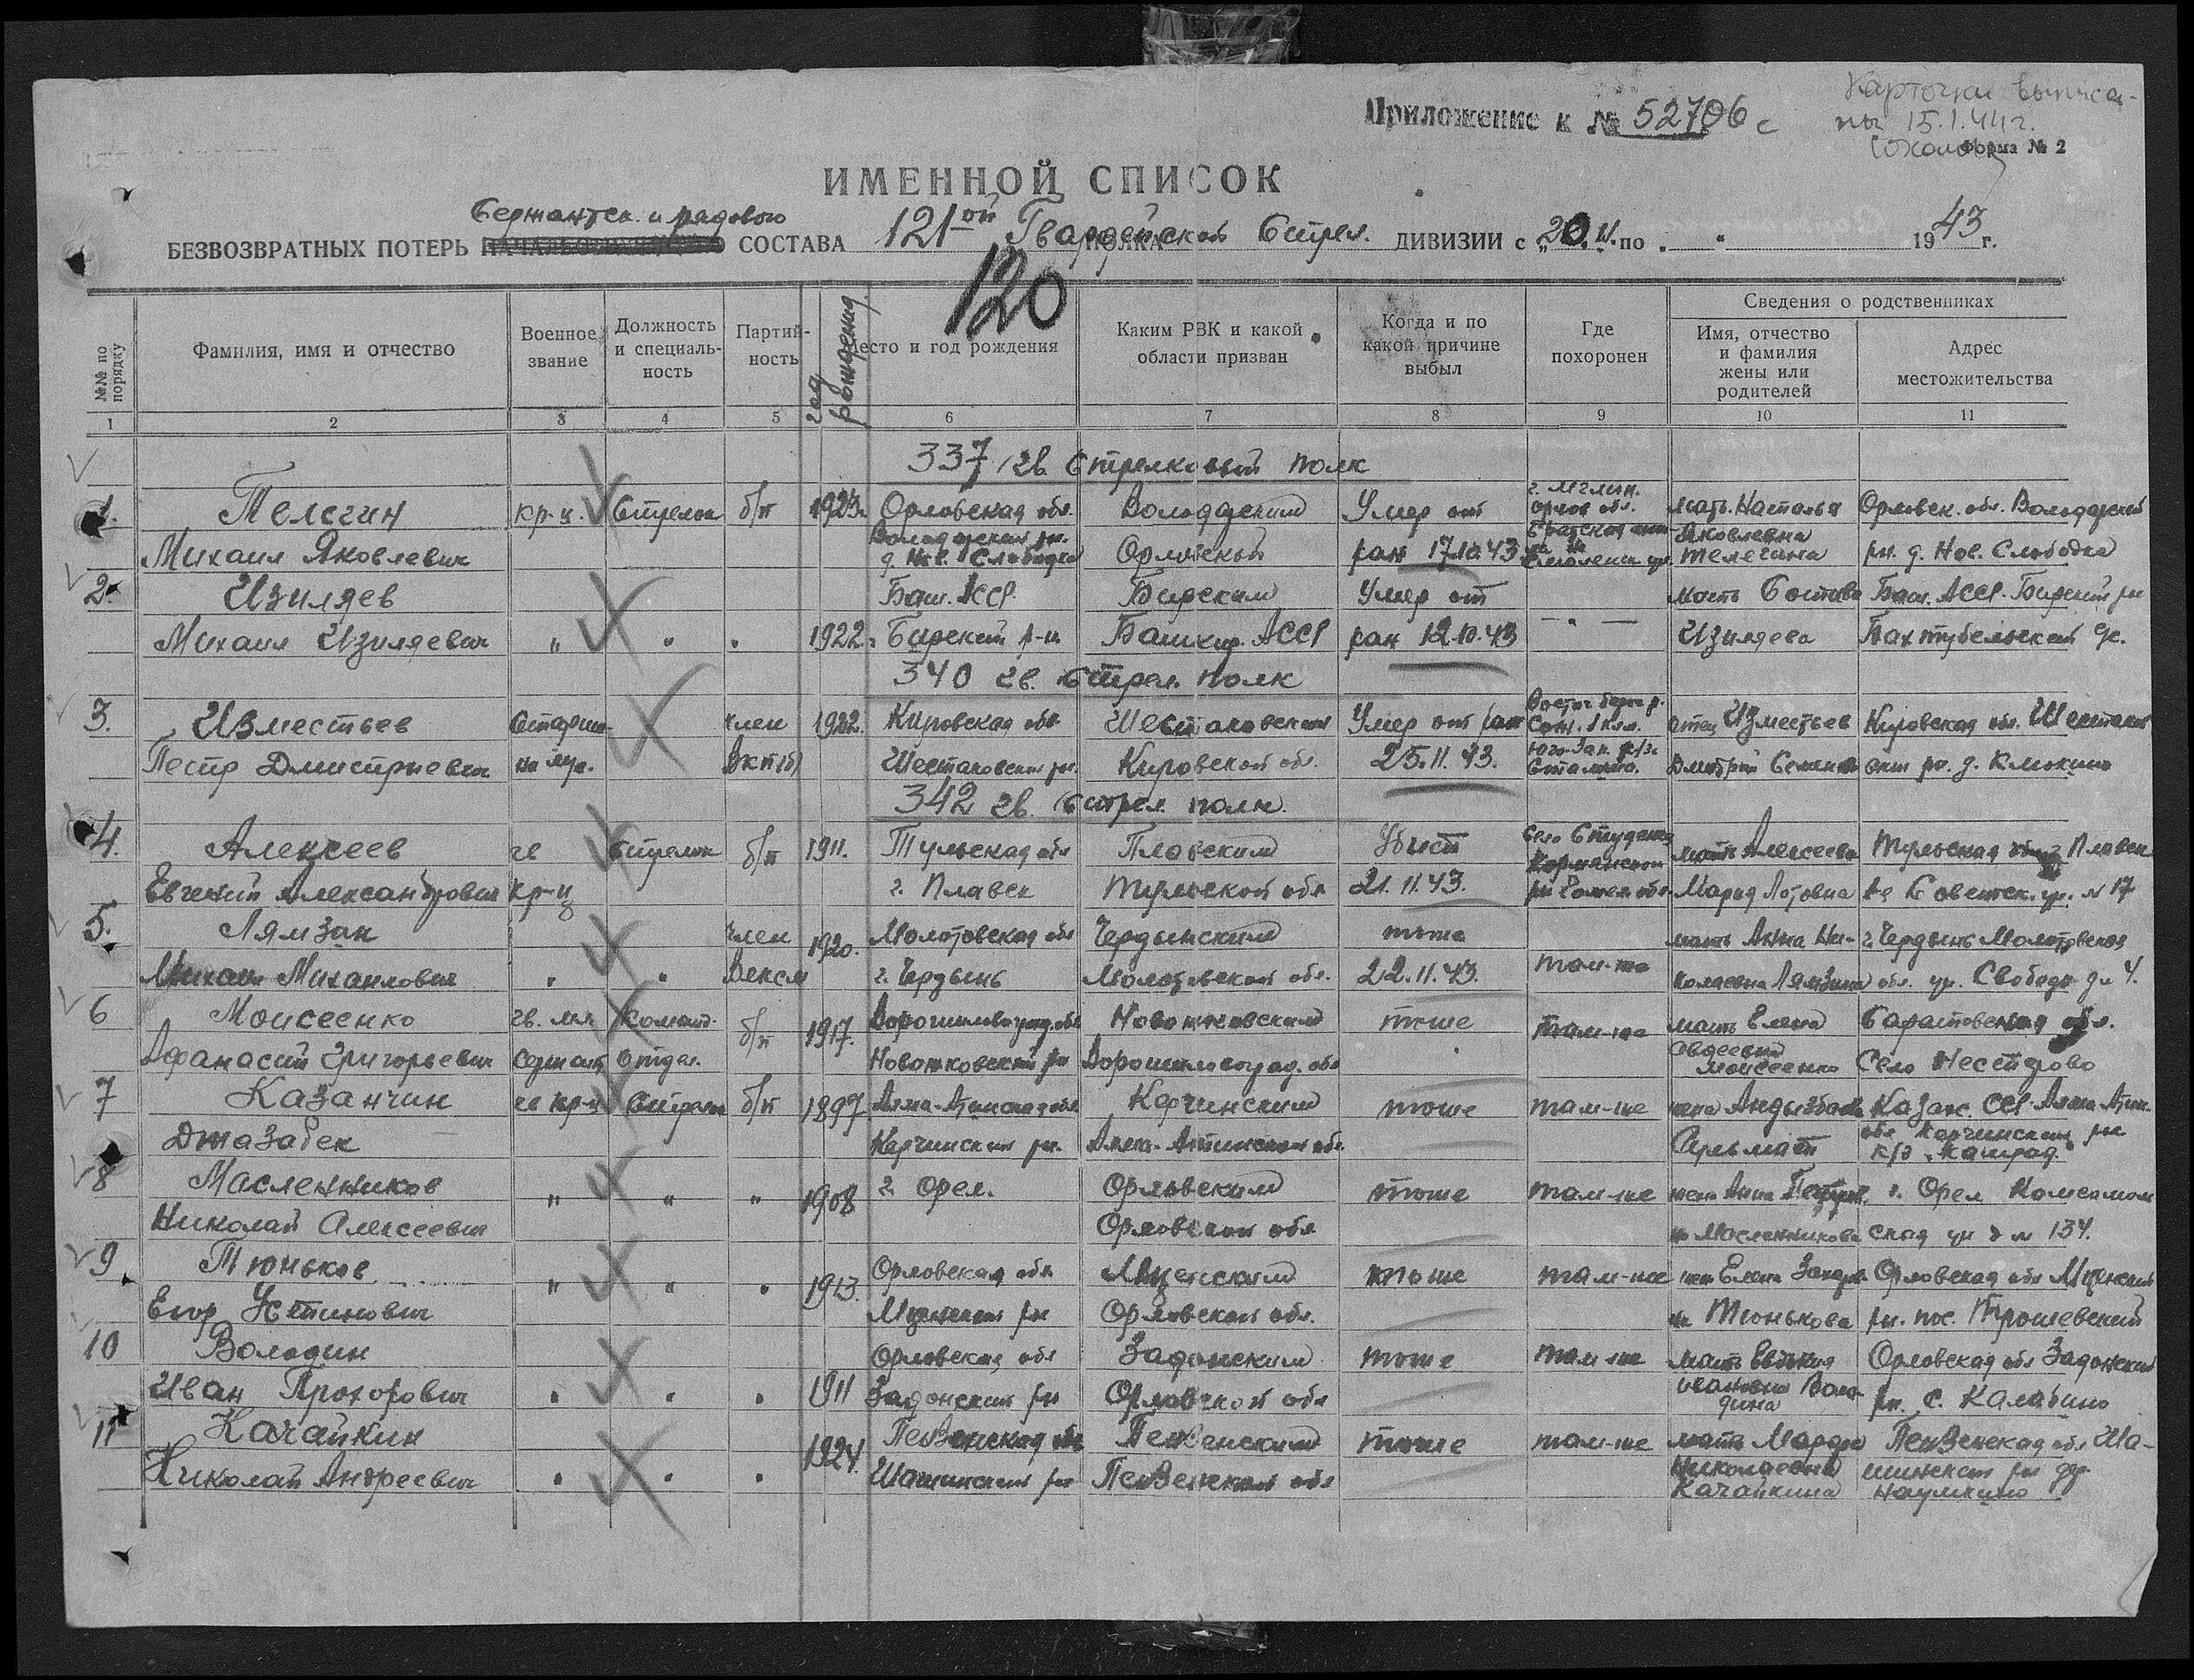 Приложение к № 52706 с
Карточки выписа-
ны 15.1.44 г.
Форма № 2
ИМЕННОЙ СПИСОК
Сержантск. и рядового
БЕЗВОЗВРАТНЫХ ПОТЕРЬ СОСТАВА 121-ой Гвардейской Стрел. ДИВИЗИИ с „20.11. по „ “ 1943 г.
120
№№ по порядку
Фамилия, имя и отчество
Военное звание
Должность и специаль-ность
Партий-ность
год рождения
Место и год рождения
Каким РВК и какой области призван
Когда и по какой причине выбыл
Где похоронен
Сведения о родственниках
Имя, отчество и фамилия жены или родителей
Адрес местожительства
1 2 3 4 5 6 7 8 9 10 11
337 гв Стрелковый полк
1. Телегин кр-ц. Стрелок б/п 1923. Орловская обл. Володарским Умер от г. Мглин. Орлов обл. мать. Наталья Орловск. обл. Володарский
Михаил Яковлевич Володарский рн. д. Нов. Слободка Орловской ран 17.10.43 Братская Яковлевна Телегина рн. д. Нов. Слободка
2. Изиляев Баш. АССР. Бирским Умер от мать Баш. АССР. Бирский рн
Михаил Изиляевич „ „ „ 1922. Бирский р-н Башкир. АССР ран 12.10.43 — „ — Изиляева
340 гв. Стрел. полк
3. Изместьев Старши- член 1922. Кировская обл Шестаковским Умер от ран Восточ. берег р. Сож. 1 клм. отец Изместьев Кировская обл. Шестаков
Петр Дмитриевич на ВКП(б) Шестаковский рн. Кировской обл. 25.11.43. Юго-Зап. Дмитрий рн. д.
342 гв. Стрел. полк.
4. Алексеев гв Стрелок б/п 1911. Тульская обл Плавским Убит Село Студенец Кормянский мать Алексеева Тульская обл. г. Плавск
Евгений Александрович кр-ц г. Плавск Тульской обл 21.11.43. рн Гомел обл. Мария Советск. ул. № 17
5. Лямзин член 1920. Молотовская обл Чердынским тоже мать Анна Ни- г. Чердынь Молотовская
Михаил Михайлович „ „ ВЛКСМ г. Чердынь Молотовской обл. 22.11.43. там-же колаевна Лямзина обл. ул. Свободы д. 4.
6 Моисеенко гв. мл. Команд. б/п 1917. Ворошиловград. обл тоже там-же мать Елена
Афанасий Григорьевич сержант отдел. рн Ворошиловград. обл Авдеевна Моисеенко Село Нестерово
7 Казанчин гв кр-ц Стрелок б/п 1897 Алма-Атинская обл тоже там-же жена Казахс. ССР Алма-Атин.
Джазабек рн. Алма-Атинской обл. обл. рн
8 Масленников „ „ „ 1908 г. Орел. Орловским тоже там-же жена Анна Петров. г. Орел Комсомоль
Николай Алексеевич Орловской обл на Масленникова ская ул д № 134.
9 Тюньков „ „ „ 1913. Орловская обл Мценским тоже там-же жена Елена Захаров Орловская обл Мценский
Егор Устинович Мценский рн Орловской обл. на Тюнькова рн. пос.
10 Володин Орловская обл Задонским тоже там-же мать Евдокия Орловская обл Задонский
Иван Прохорович „ „ „ 1911 Задонский рн Орловской обл Ивановна Воло-дина рн. с. Калабино
11 Качайкин 1924. Пензенская обл Пензенским тоже там-же мать Марфа Пензенская обл Ша-
Николай Андреевич „ „ „ рн Пензенской обл Николаевна Качайкина рн дер Наумкино